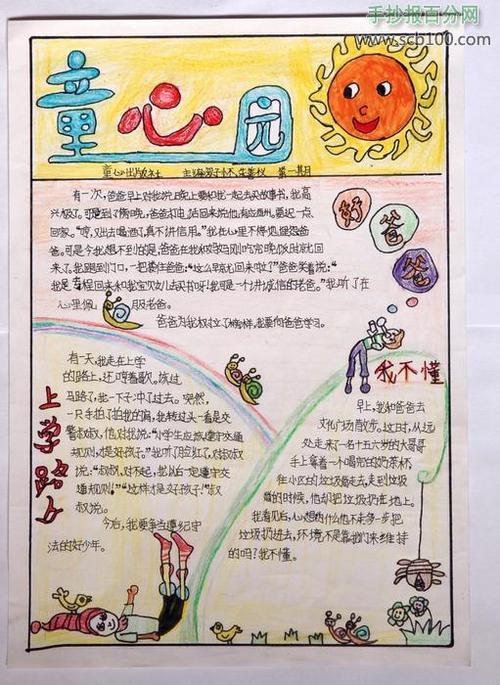 手抄报百分网
www.scb100.com
童心园
童心出版社
第一期
好爸爸
有一次,爸爸早上对我说晚上要和我一起去买故事书,我高
兴极了。可是到了傍晚,爸爸打电话回来说他有应酬,要迟一点
回家。"哼,又出去喝酒了,真不讲信用。"我在心里不停埋怨爸
爸。可是令我想不到的是,爸爸在我和妈妈刚吃完晚饭时就回
来了。我跑到门口,一把搂住爸爸:"怎么早就回来啦?"爸爸笑着说:"
我是专程回来和我宝贝儿去买书呀!我可是一个讲诚信的老爸。"我听了在
心里佩服老爸。
爸爸为我树立了榜样,我要向爸爸学习。
上学路上
有一天,我走在上学
的路上,还哼着歌,旅过
马路了,我一下子冲了过去。突然,
一只手拍了拍我的肩,我转过头一看是交
警叔叔,他对我说:"小学生应该遵守交通
规则,才是好孩子。"我听了脸红了,对叔叔
说:"叔叔,对不起,我从后一定遵守交
通规则!""这样才是好孩子!"叔
叔说。
今后,我要争当遵纪守
法的好少年。
我不懂
早上,我和爸爸去
文化广场散步。这时,从远
处走来了一名十五六岁的大哥哥
手上拿着一个喝完的奶茶杯
在小区的垃圾桶走去,走到垃圾
桶的时候,他却把垃圾扔在地上。
我看见后,心想为什么他不走多一步把
垃圾扔进去,环境不是靠我们来维持
的吗?我不懂。